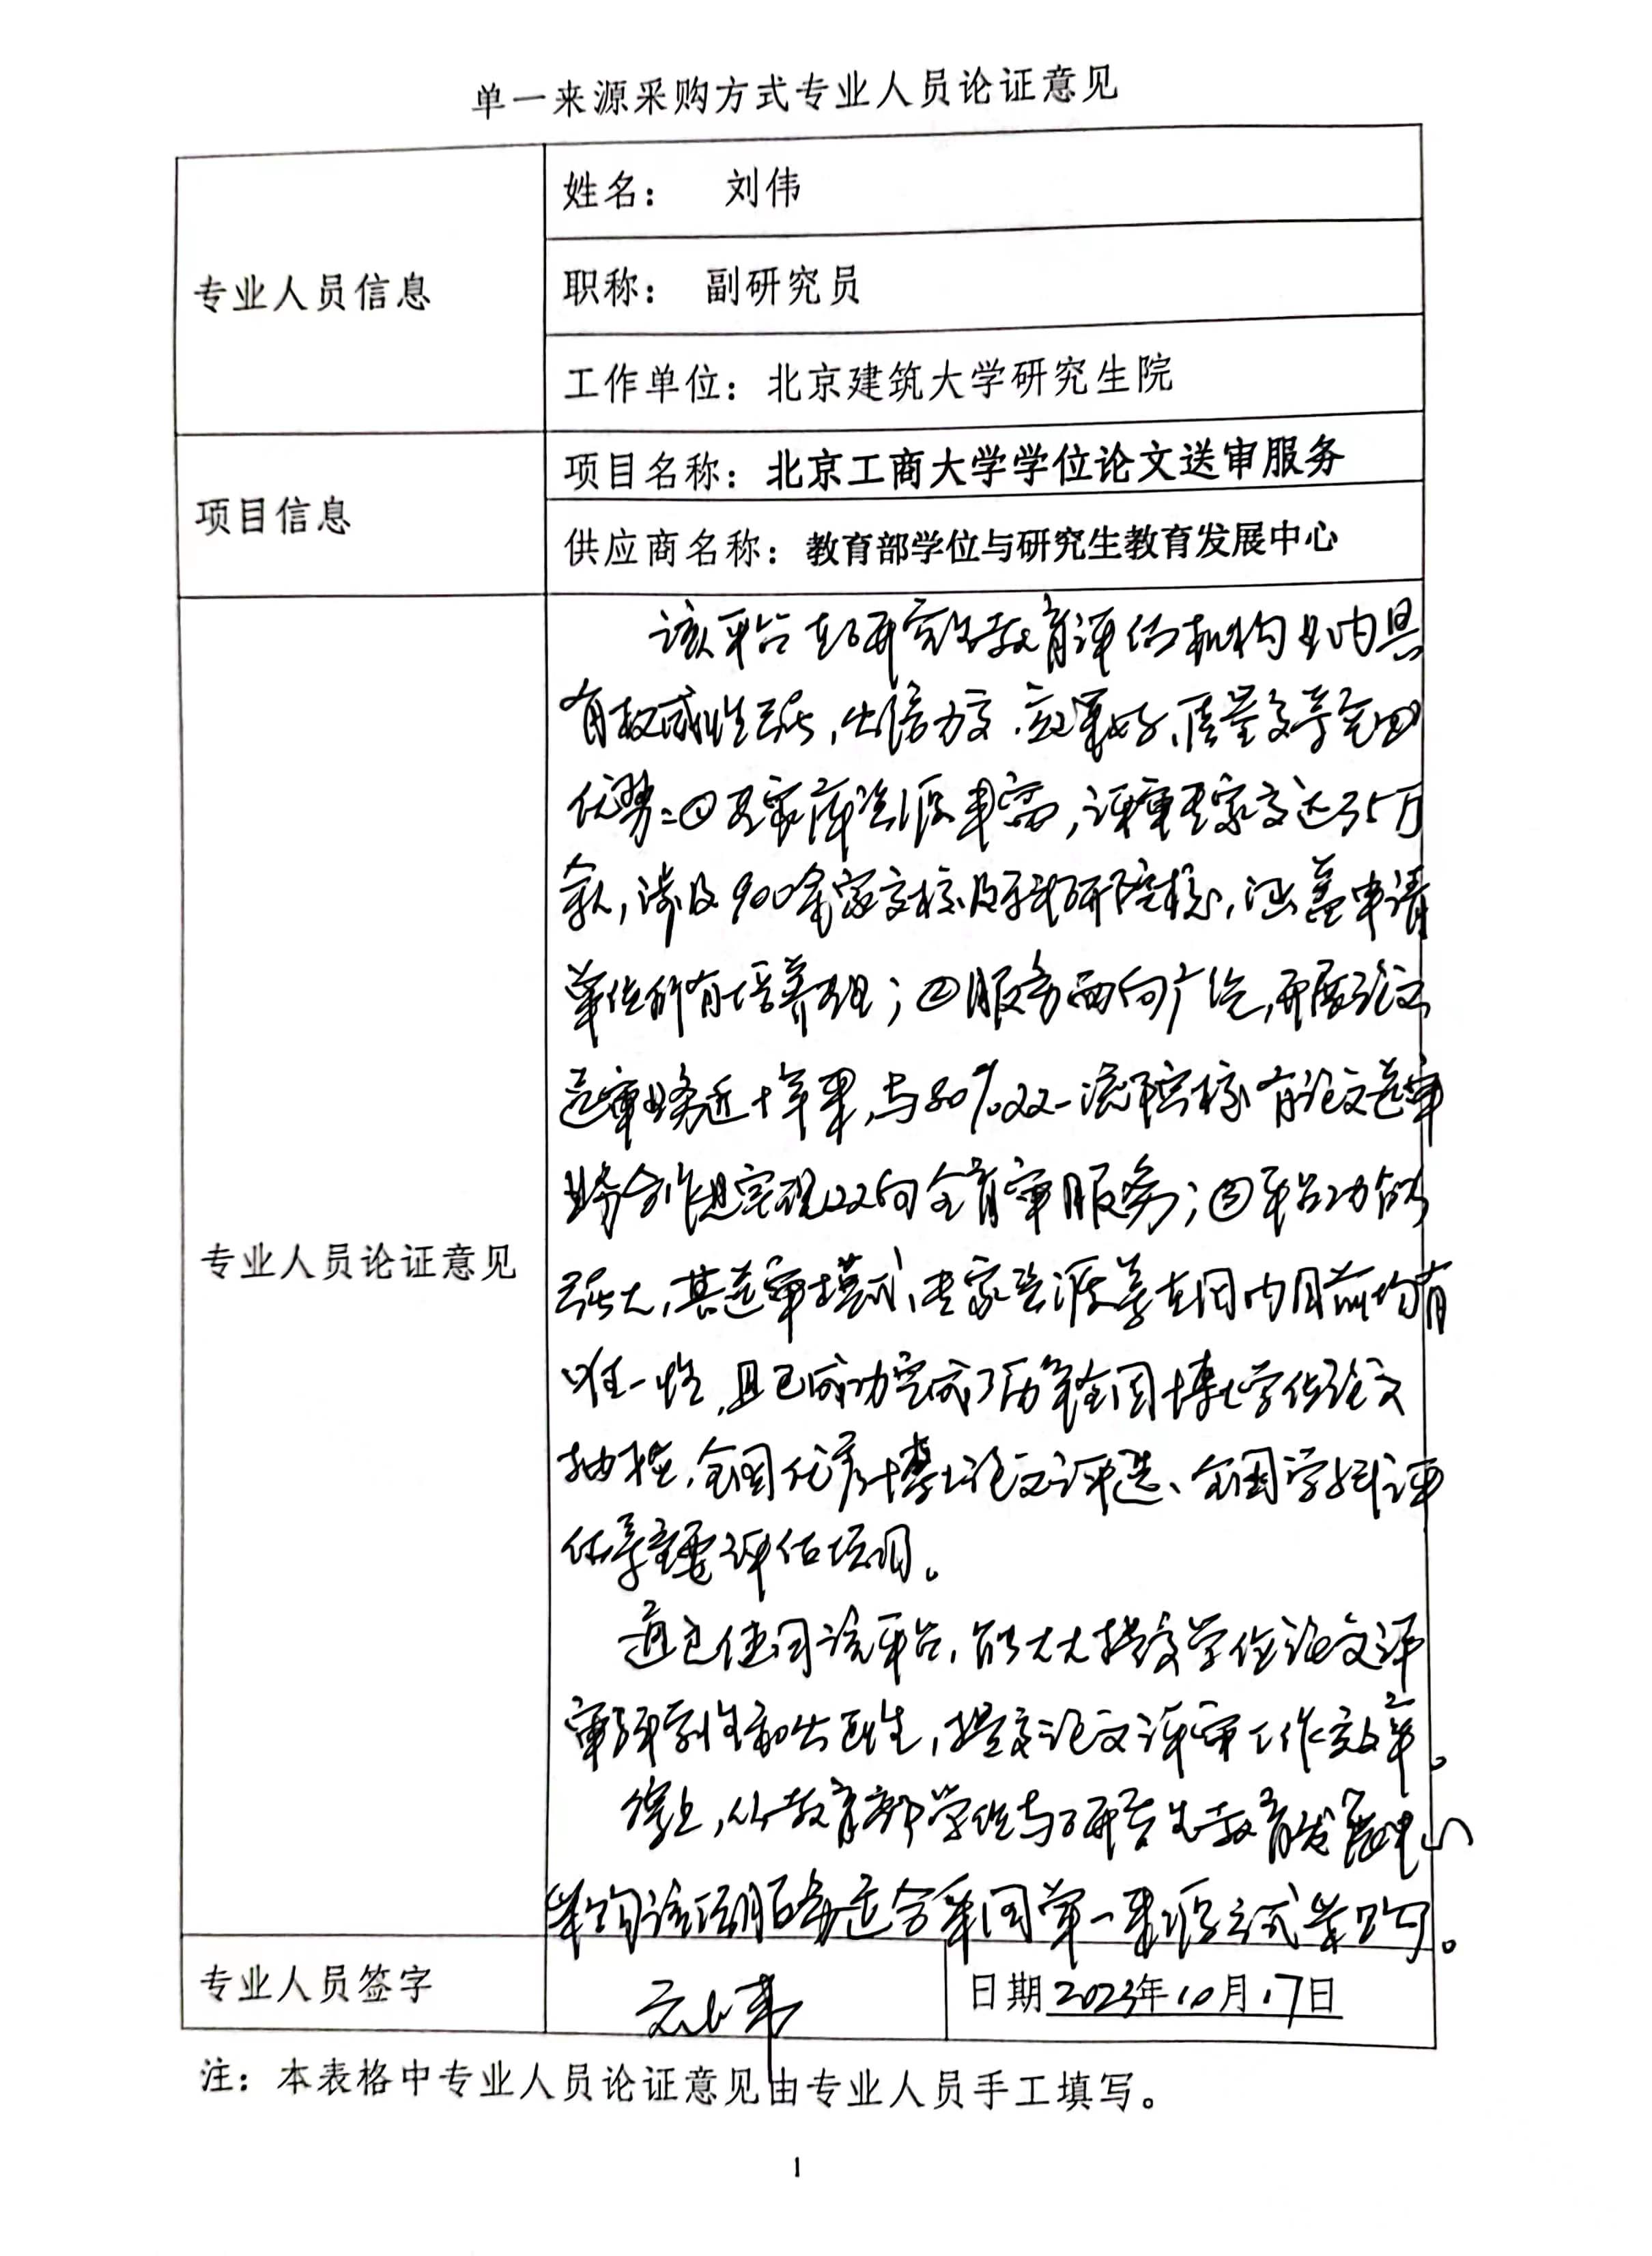 单一来源采购方式专业人员论证意见
专业人员信息
姓名： 刘伟
职称： 副研究员
工作单位：北京建筑大学研究生院
项目信息
项目名称：北京工商大学学位论文送审服务
供应商名称：教育部学位与研究生教育发展中心
专业人员论证意见
该平台在研究生教育评估机构业内具
有权威性强，公信力高、效率好、质量高等
优势：①专家库资源丰富，评审专家高达35万
余人，涉及900余家高校及科研院校，涵盖申请
单位所有培养；②服务面向广泛，开展论文
送审业务近十年来，与80%双一流院校有论文送审
业务合作且实现双向全盲审服务；③平台功能
强大，其送审模式、专家资源等在国内目前均有
唯一性，且已成功完成了历年全国博士学位论文
抽检、全国优秀博士论文评选、全国学科评
估等重要评估项目。
通过使用该平台，能大大提高学位论文评
审科学性和公正性，提高论文评审工作效率。
综上，从教育部学位与研究生教育发展中心
采购该项服务适合采用单一来源方式采购。
专业人员签字
刘伟
日期2023年10月17日
注：本表格中专业人员论证意见由专业人员手工填写。
1